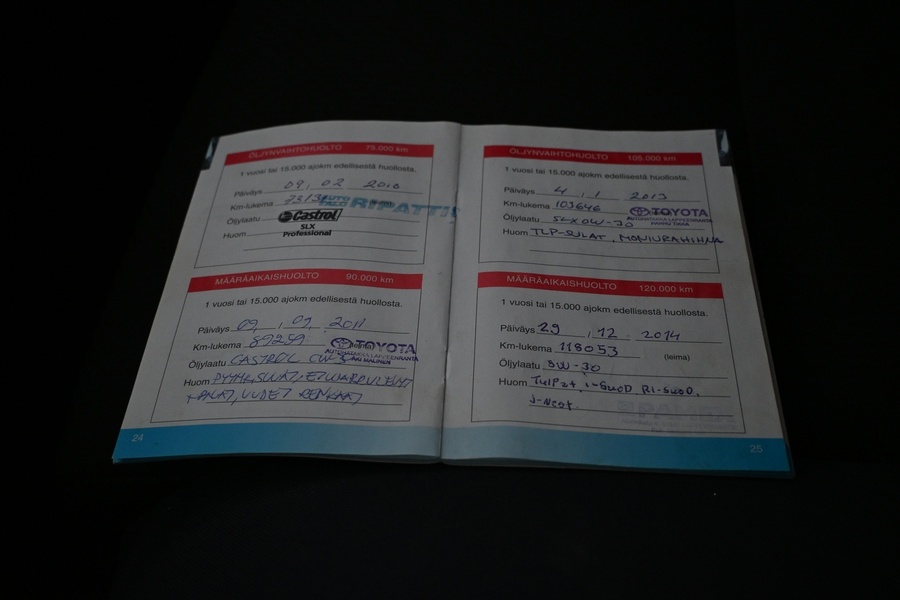 ÖLJYNVAIHTOHUOLTO 75.000 km
1 vuosi tai 15.000 ajokm edellisestä huollosta.
Päiväys 09. 02 2010
Km-lukema
AUTO TALO RIPATTI
Öljylaatu Castrol
SLX
Professional
Huom
MÄÄRÄAIKAISHUOLTO 90.000 km
1 vuosi tai 15.000 ajokm edellisestä huollosta.
Päiväys 09. 09. 2011
Km-lukema 89259 (leima)
TOYOTA
Öljylaatu CASTROL
Huom
UUDET RENKAAT
24
ÖLJYNVAIHTOHUOLTO 105.000 km
1 vuosi tai 15.000 ajokm edellisestä huollosta.
Päiväys 4. 1 2013
Km-lukema 103646
TOYOTA
Öljylaatu SLX 0W-30
Huom TLP-SULAT, MONIURAHIHNA
MÄÄRÄAIKAISHUOLTO 120.000 km
1 vuosi tai 15.000 ajokm edellisestä huollosta.
Päiväys 29 . 12 . 2014
Km-lukema 118053
(leima)
Öljylaatu 5W-30
Huom
J-Nest.
25